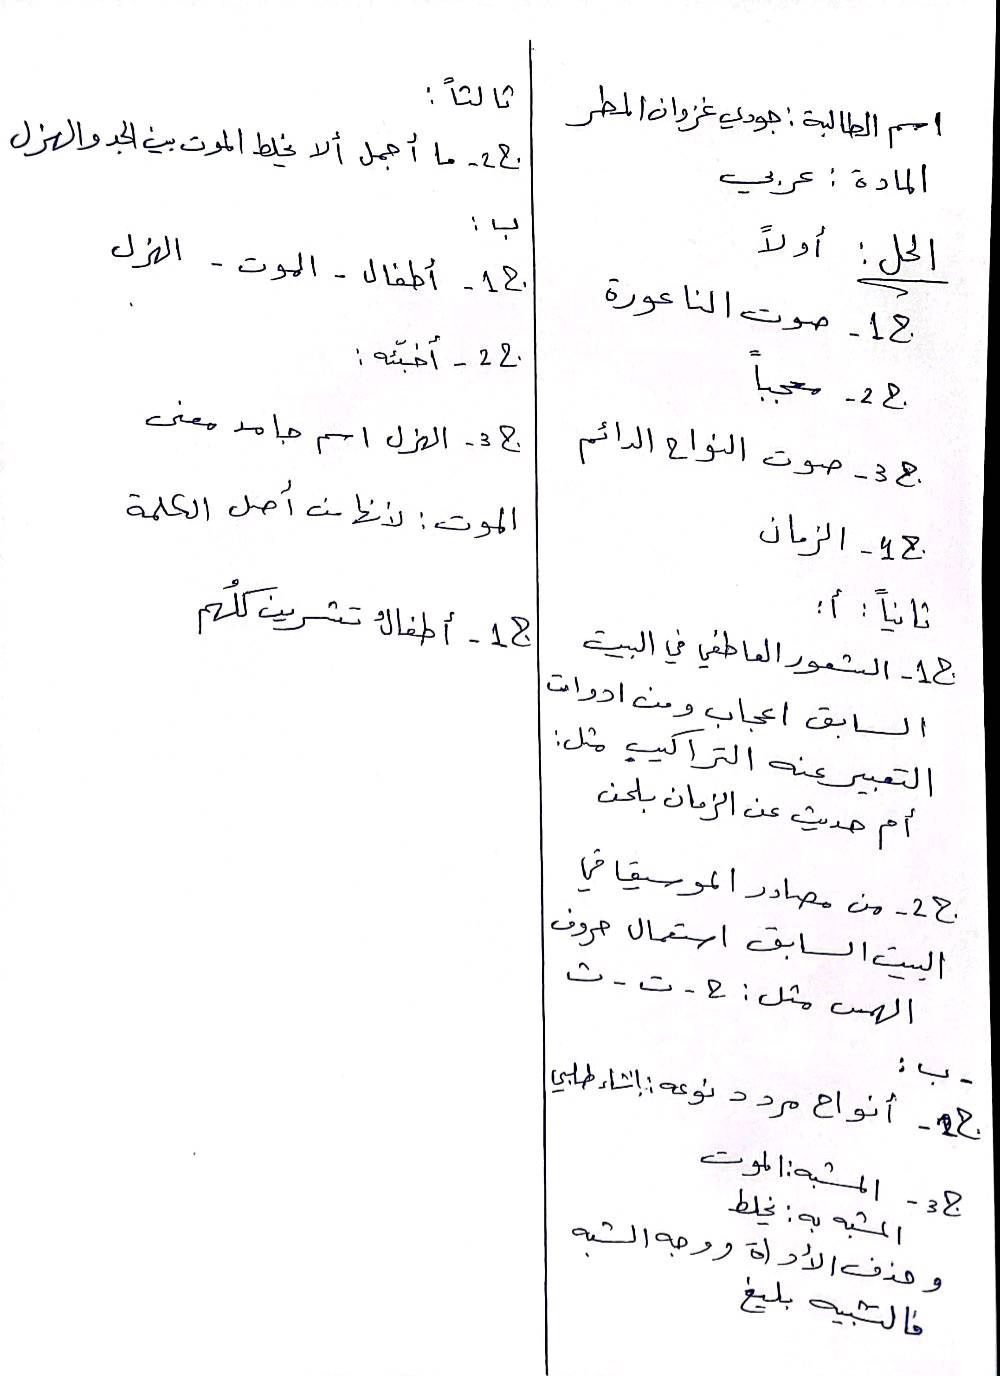 اسم الطالبة : جودي غزوان المطر
المادة : عربي
الحل : أولاً
ج1- صوت الناعورة
ج2- معجباً
ج3- صوت النواح الدائم
ج4- الزمان
ثانياً : أ :
ج1- الشعور العاطفي في البيت
السابق اعجاب ومن ادوات
التعبير عنه التراكيب مثل :
أم حديث عن الزمان بلحن
ج2- من مصادر الموسيقا في
البيت السابق استعمال حروف
الهمس مثل : ح - ت - ث
- ب :
ج1- أنواح مردد نوعه : إنشاء طلبي
ج3- المشبه : الموت
المشبه به : يخلط
وحذف الأداة ووجه الشبه
فالتشبيه بليغ
ثالثاً :
ج2- ما أجمل ألا يخلط الموت بين الجد والهزل
ب :
ج1- أطفال - الموت - الهزل
ج2- أخبّئه :
ج3- الهزل اسم جامد معنى
الموت : لأنها من أصل الكلمة
ج1- أطفالُ تشرين كلُهم